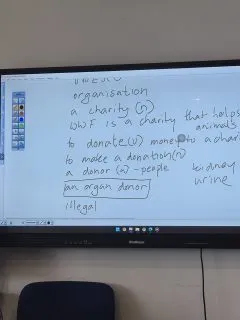 organisation
a charity (n)
WWF is a charity that helps
animals
to donate (v) money to a chari
to make a donation (n)
a donor (n) - people
kidney
urine
an organ donor
illegal